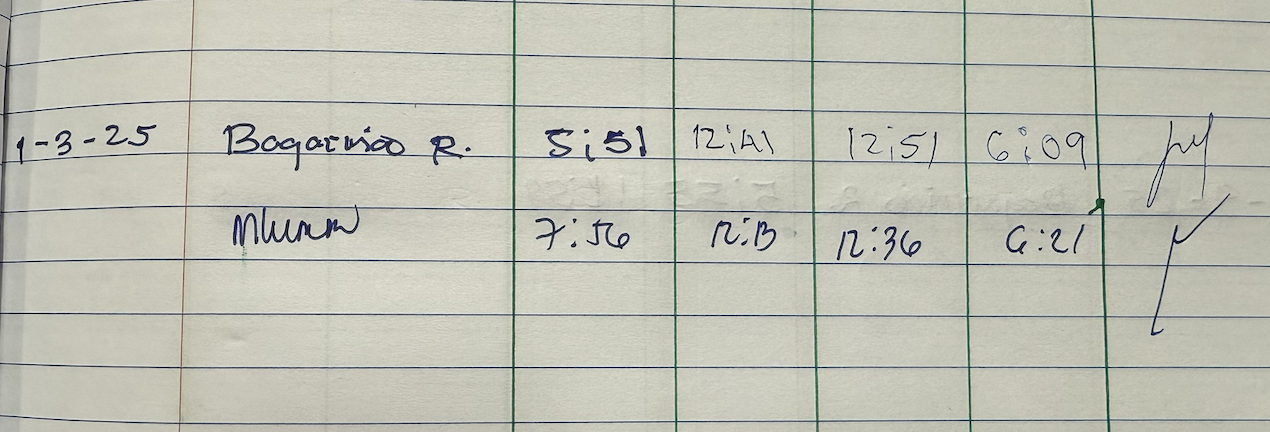 1-3-25 R. 5:51 12:41 12:51 6:09
7:56 12:13 12:36 6:21